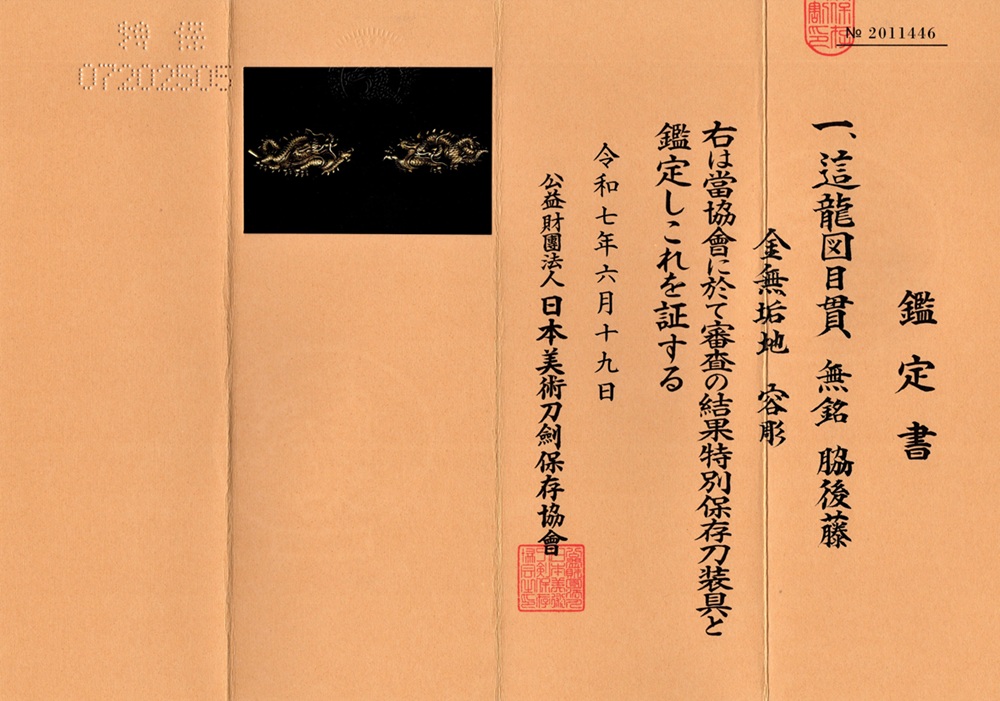 № 2011446
鑑定書
一、這龍図目貫 無銘 脇後藤
金無垢地 容彫
右は當協會に於て審査の結果特別保存刀装具と
鑑定しこれを証する
令和七年六月十九日
公益財團法人 日本美術刀劍保存協會
特保
07202505